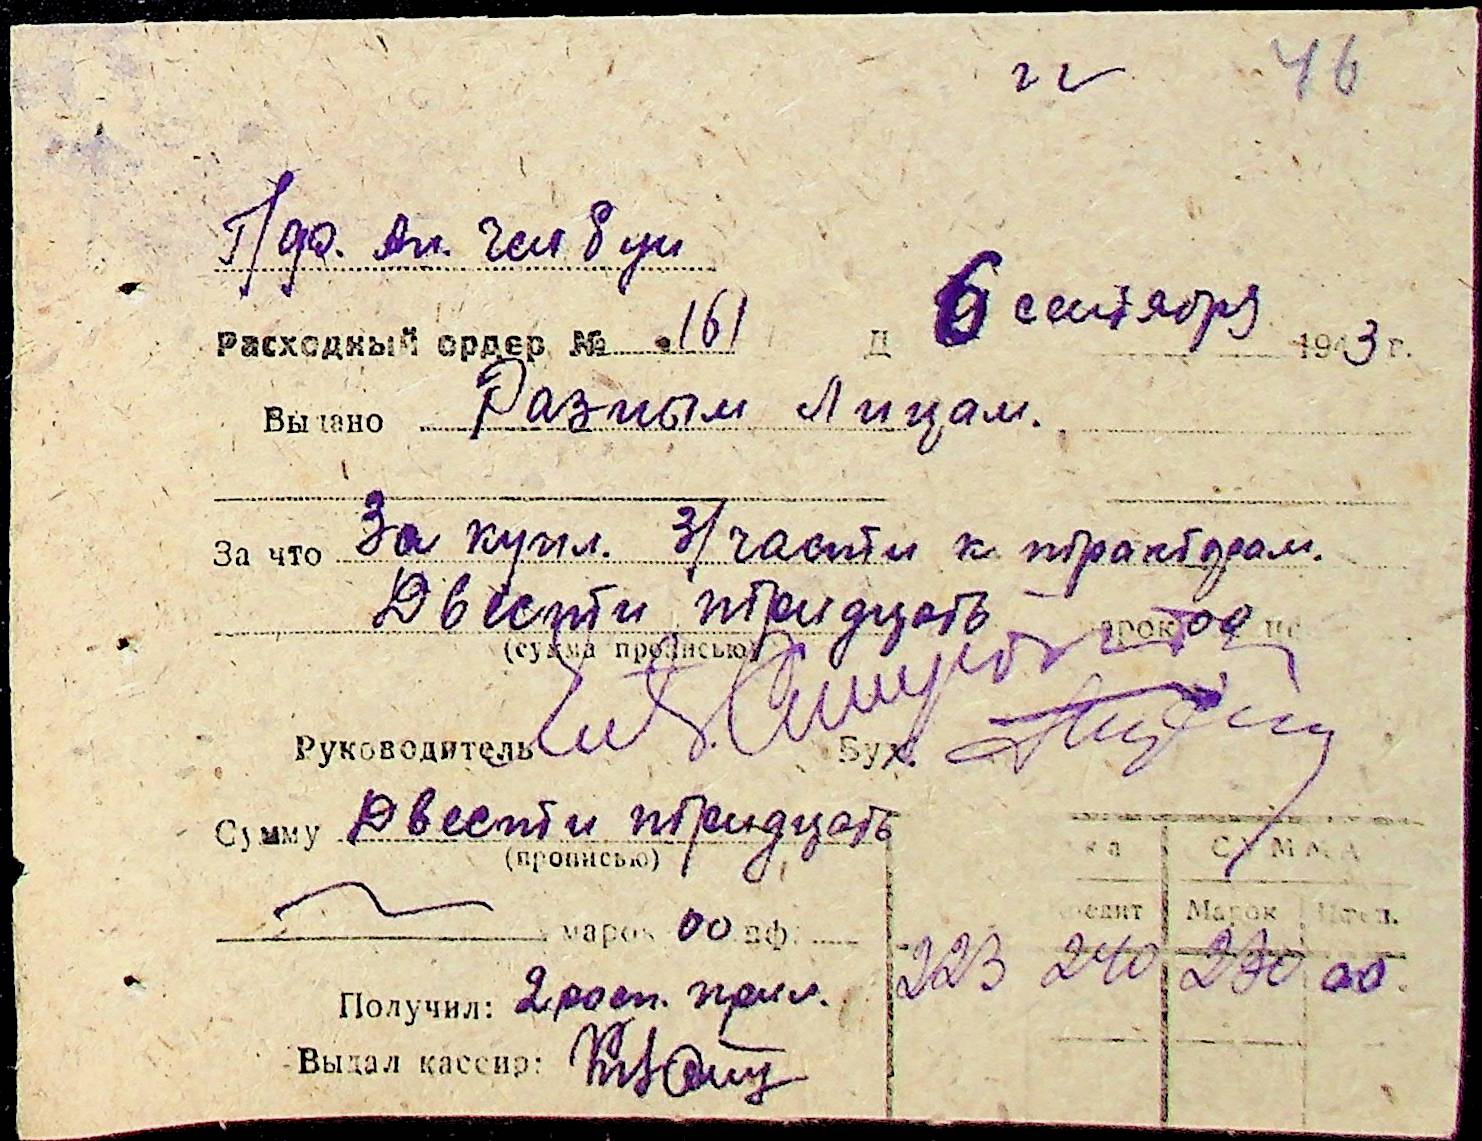 46
Расходный ордер № 161 Д 6 сентября 1943 г.
Выдано Разным Лицам.
За что За купл. з/части к тракторам.
Двести тридцать марок 00
(сумма прописью)
Руководитель Бух.
Сумму Двести тридцать
(прописью)
СУММА
Кредит Марок Пфен.
марок 00 пф.
223 240 230 00.
Получил: 2 расп. прил.
Выдал кассир: